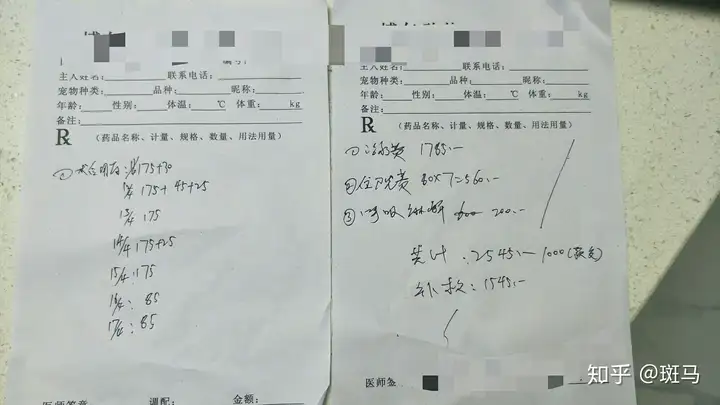 主人姓名: 联系电话:
宠物种类: 品种: 昵称:
年龄: 性别: 体温: ℃ 体重: kg
备注:
R (药品名称、计量、规格、数量、用法用量)
① 175+30
175+45+25
13/4 175
14/4 175+25
15/4: 175
16/4: 85
17/4: 85
医师签章 调配: 金额:
主人姓名: 联系电话:
宠物种类: 品种: 昵称:
年龄: 性别: 体温: ℃ 体重: kg
备注:
R (药品名称、计量、规格、数量、用法用量)
① 治疗费 1785.—
② 住院费 80×7=560.—
③ 呼吸麻醉 200.—
共计: 2545.— 1000
补款: 1545.—
医师签
知乎 @斑马